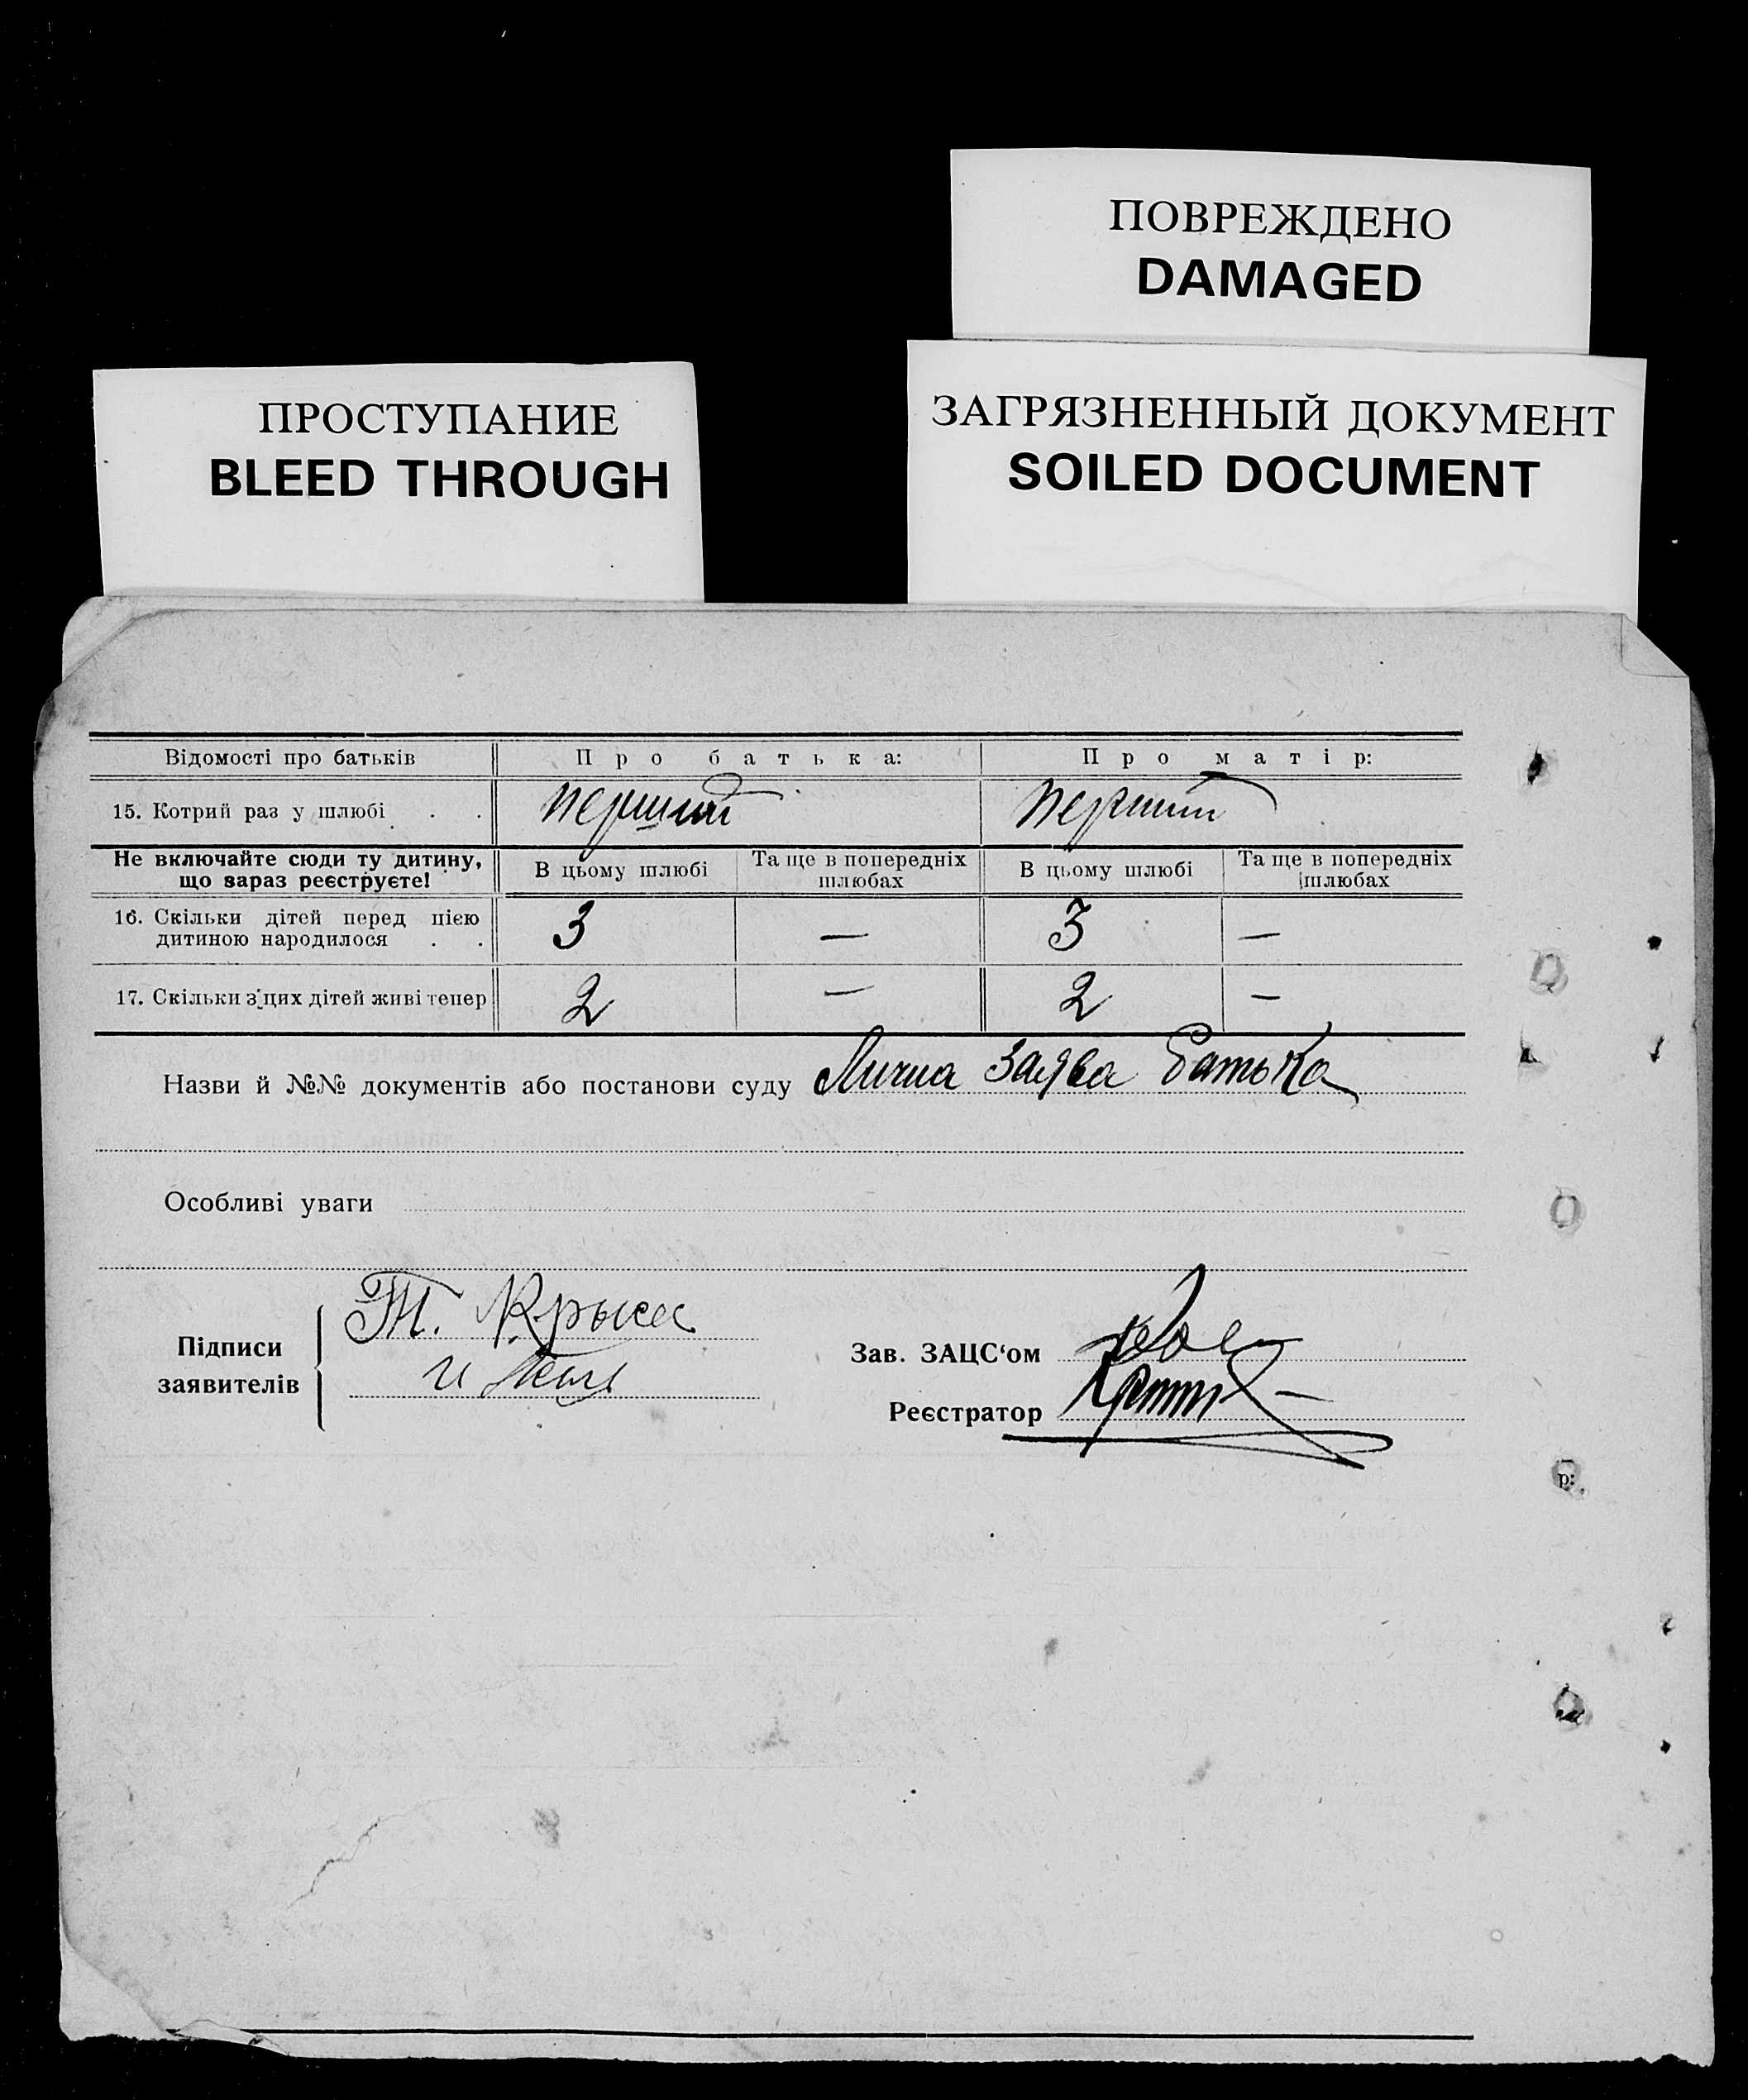 ПОВРЕЖДЕНО
DAMAGED
ПРОСТУПАНИЕ
BLEED THROUGH
ЗАГРЯЗНЕННЫЙ ДОКУМЕНТ
SOILED DOCUMENT
Відомості про батьків Про батька: Про матір:
15. Котрий раз у шлюбі . . перший перший
Не включайте сюди ту дитину, що зараз реєструєте! В цьому шлюбі Та ще в попередніх шлюбах В цьому шлюбі Та ще в попередніх шлюбах
16. Скільки дітей перед цією дитиною народилося . . 3 — 3 —
17. Скільки з цих дітей живі тепер 2 — 2 —
Назви й №№ документів або постанови суду Лична заява батька
Особливі уваги
Підписи заявителів
Т. Крыса
Зав. ЗАЦС‘ом
Реєстратор
р: